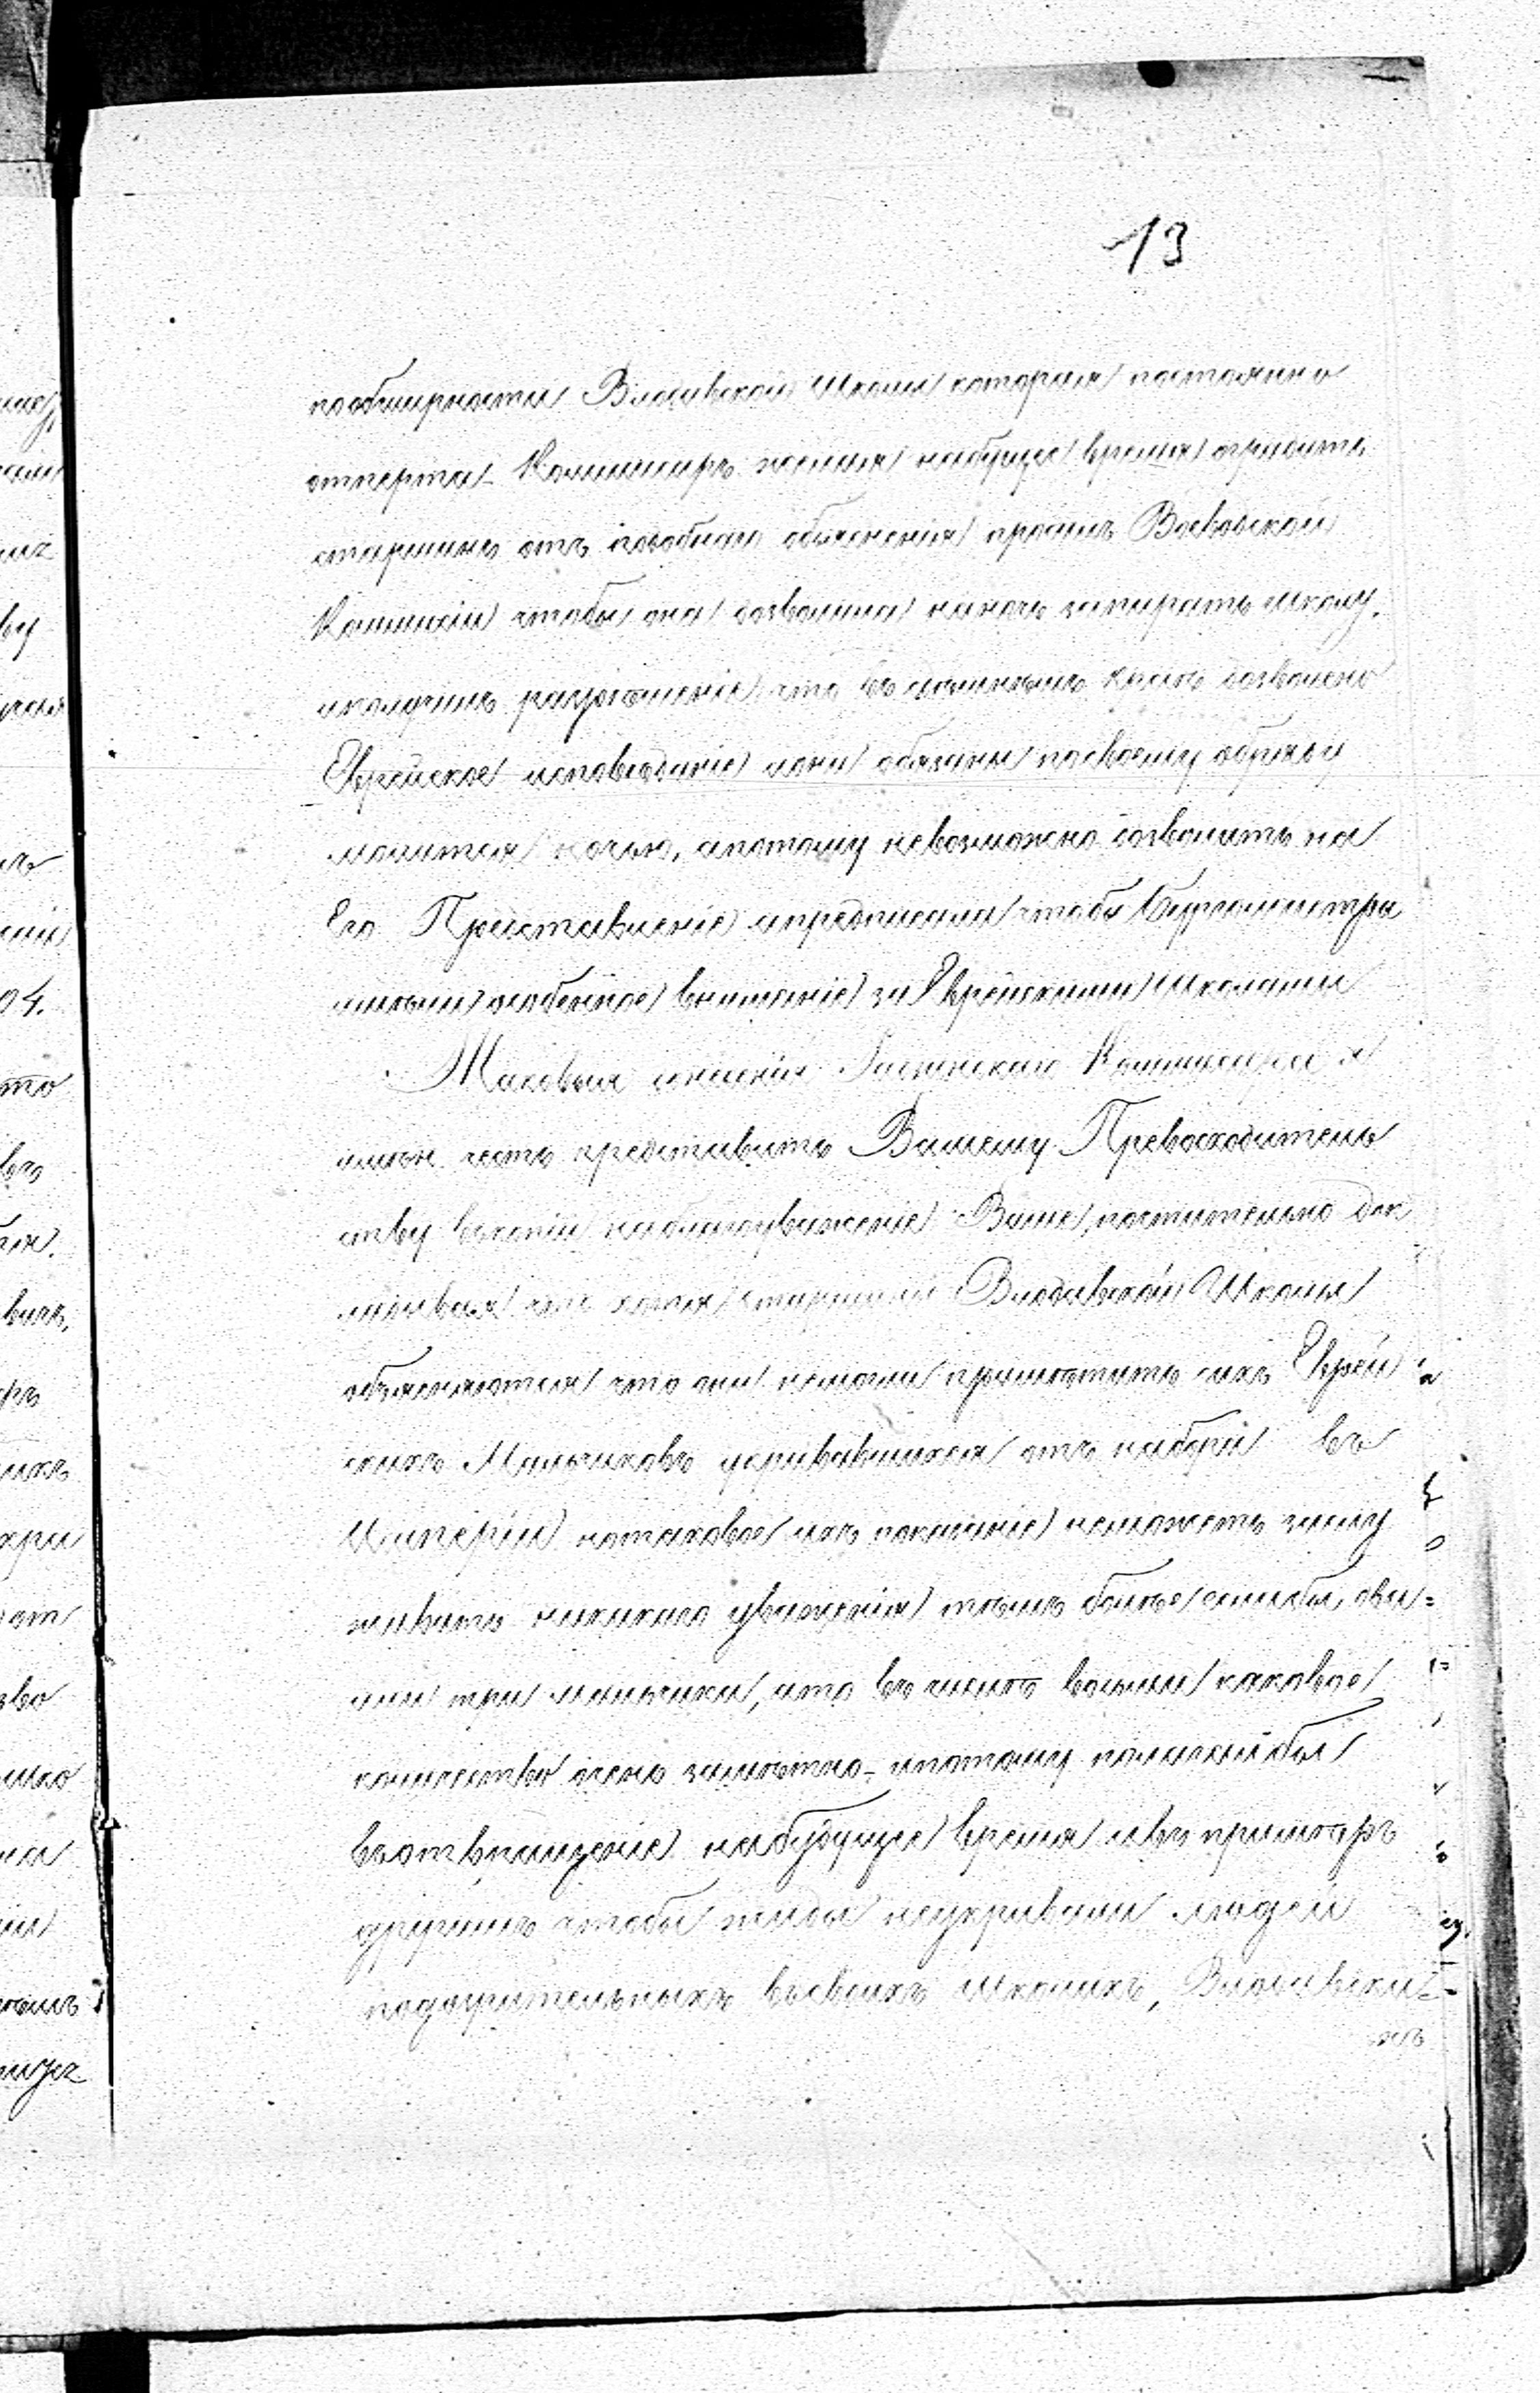 13
пообширности Влодавской Школы которая постоянно
отперта. Коммисаръ желая набудуще время оградить
старшинъ отъ подобнаго объясненія просилъ Воеводской
Коммисіи чтобы она дозволила наночь запирать школу.
иполучилъ разрѣшеніе что въ здѣшнемъ краѣ дозволено
Еврейское исповѣданіе иони обязаны посвоему обряду
молится ночью, апотому невозможно дозволить на
Его Представленіе ипредписала чтобы Бургомистры
имѣли особенное вниманіе за Еврейскими Школами
Таковыя Коммисара я
имѣю честь представить Вашему Превосходитель
ству наблагоуваженіе Ваше, почтительно док
ладывая что хотя старшины Влодавской Школы
объясняются что они немогли примѣтить сихъ Еврей
скихъ Мальчиковъ укрывавшихся отъ набора въ
Имперіи нотаковое ихъ показаніе неможетъ заслу
живать никакого уваженія тѣмъ болѣе еслибы два
или три мальчика, ато въ числѣ восьми каковое
количество очень замѣтно - ипотому полагалъбы
въотвращеніе набудущее время ивъ примѣръ
другимъ чтобы жиды неукрывали людей
подозрительныхъ въсвоихъ Школахъ, Влодавски-
хъ